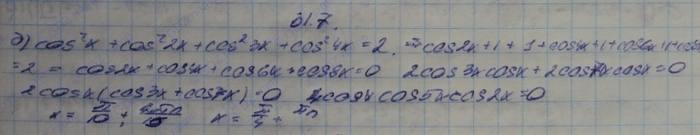 31.7.
д) cos²x + cos²2x + cos²3x + cos²4x = 2. ⇒ cos2x + 1 + 1 + cos4x + 1 + cos6x + 1 + cos8x
= 2 = cos2x + cos4x + cos6x + cos8x = 0 2cos3x cosx + 2cos7x cosx = 0
2cosx (cos3x + cos7x) = 0 4cosx cos5x cos2x = 0
x = π/10 + πn/5 x = π/4 + πn